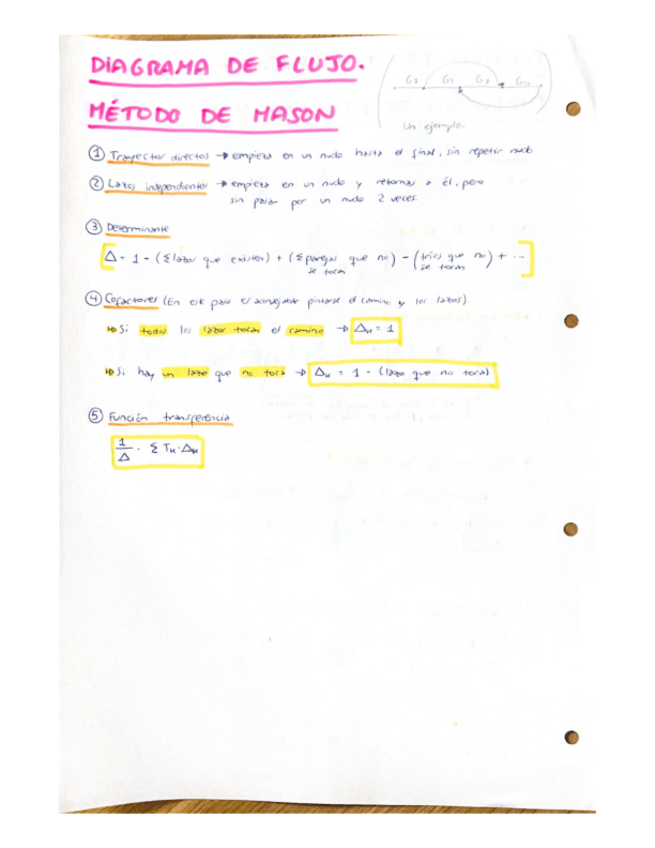 DIAGRAMA DE FLUJO.
MÉTODO DE MASON
G1
Un ejemplo.
① Trayector directos → empieza en un nudo hasta el final, sin repetir nudo
② Lazos independientes → empieza en un nudo y retornas a él, pero
sin pasar por un nudo 2 veces.
③ Determinante
Δ = 1 - (Σ lazos que existen) + (Σ parejas que no se tocan) - (tríos que no se tocan) + ...
④ Cofactores (En este paso es aconsejable pintarse el camino y los lazos)
⇒ Si todos los lazos tocan el camino → Δk = 1
⇒ Si hay un lazo que no toca → Δk = 1 - (lazo que no toca)
⑤ Función transferencia
1/Δ · Σ Tk·Δk